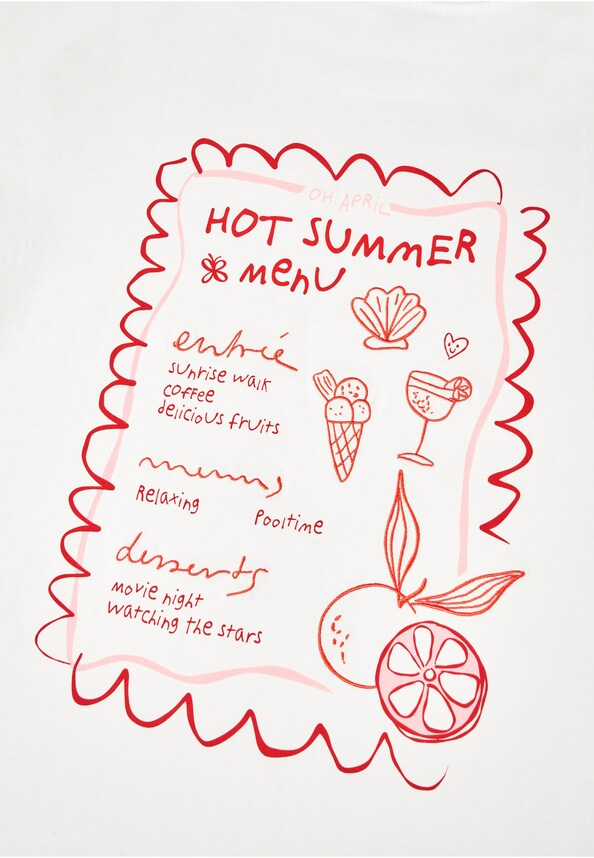 OH APRIL
HOT SUMMER
menu
entrée
sunrise walk
coffee
delicious fruits
Relaxing
Pooltime
desserts
movie night
watching the stars